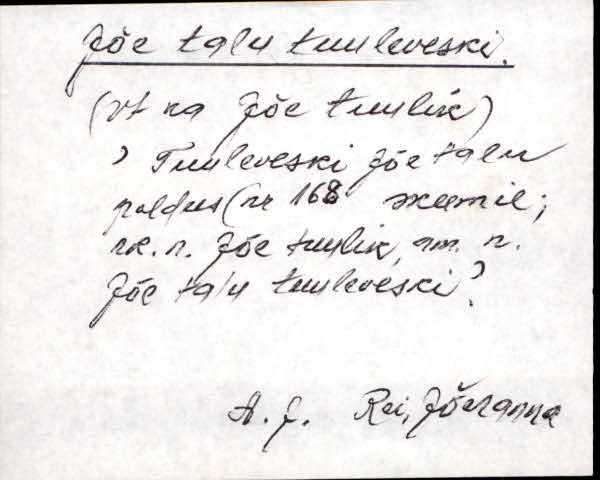 Jõe talu tuuleveski.
(vt ka Jõe tuulik)
, Tuuleveski Jõe talu
poldus (nr 168 skeemil;
rk. n. Jõe tuulik, nm. n.
Jõe talu tuuleveski?
A. J. Rei, Jõeranna